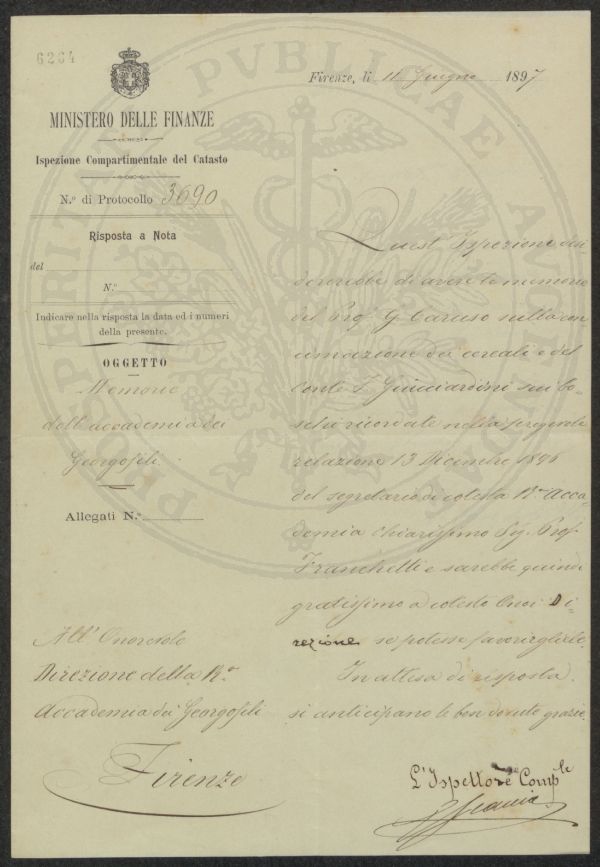 6264
Firenze, li 11 Giugno 1897
MINISTERO DELLE FINANZE
Ispezione Compartimentale del Catasto
N.º di Protocollo 3690
Risposta a Nota
del
N.º
Indicare nella risposta la data ed i numeri
della presente.
OGGETTO
Memorie
dell'accademia dei
Georgofili
Allegati N.º
Quest'Ispezione desi-
dererebbe di avere le memorie
del Prof. G. Caruso sulla con-
cimazione dei cereali e del
Conte F. Guicciardini sui bo-
schi ricordate nella pregevole
relazione 13 Dicembre 1896
del segretario di cotesta R.ª Acca-
demia Chiarissimo Sig. Prof.
Franchetti e sarebbe quindi
gratissimo a cotesta Onor. Di-
rezione se potesse favorirgliele.
In attesa di risposta
si anticipano le ben dovute grazie.
All'Onorevole
Direzione della R.ª
Accademia dei Georgofili
Firenze
L'Ispettore Comp.le
PROSPERITATI PVBLICAE AVGENDAE